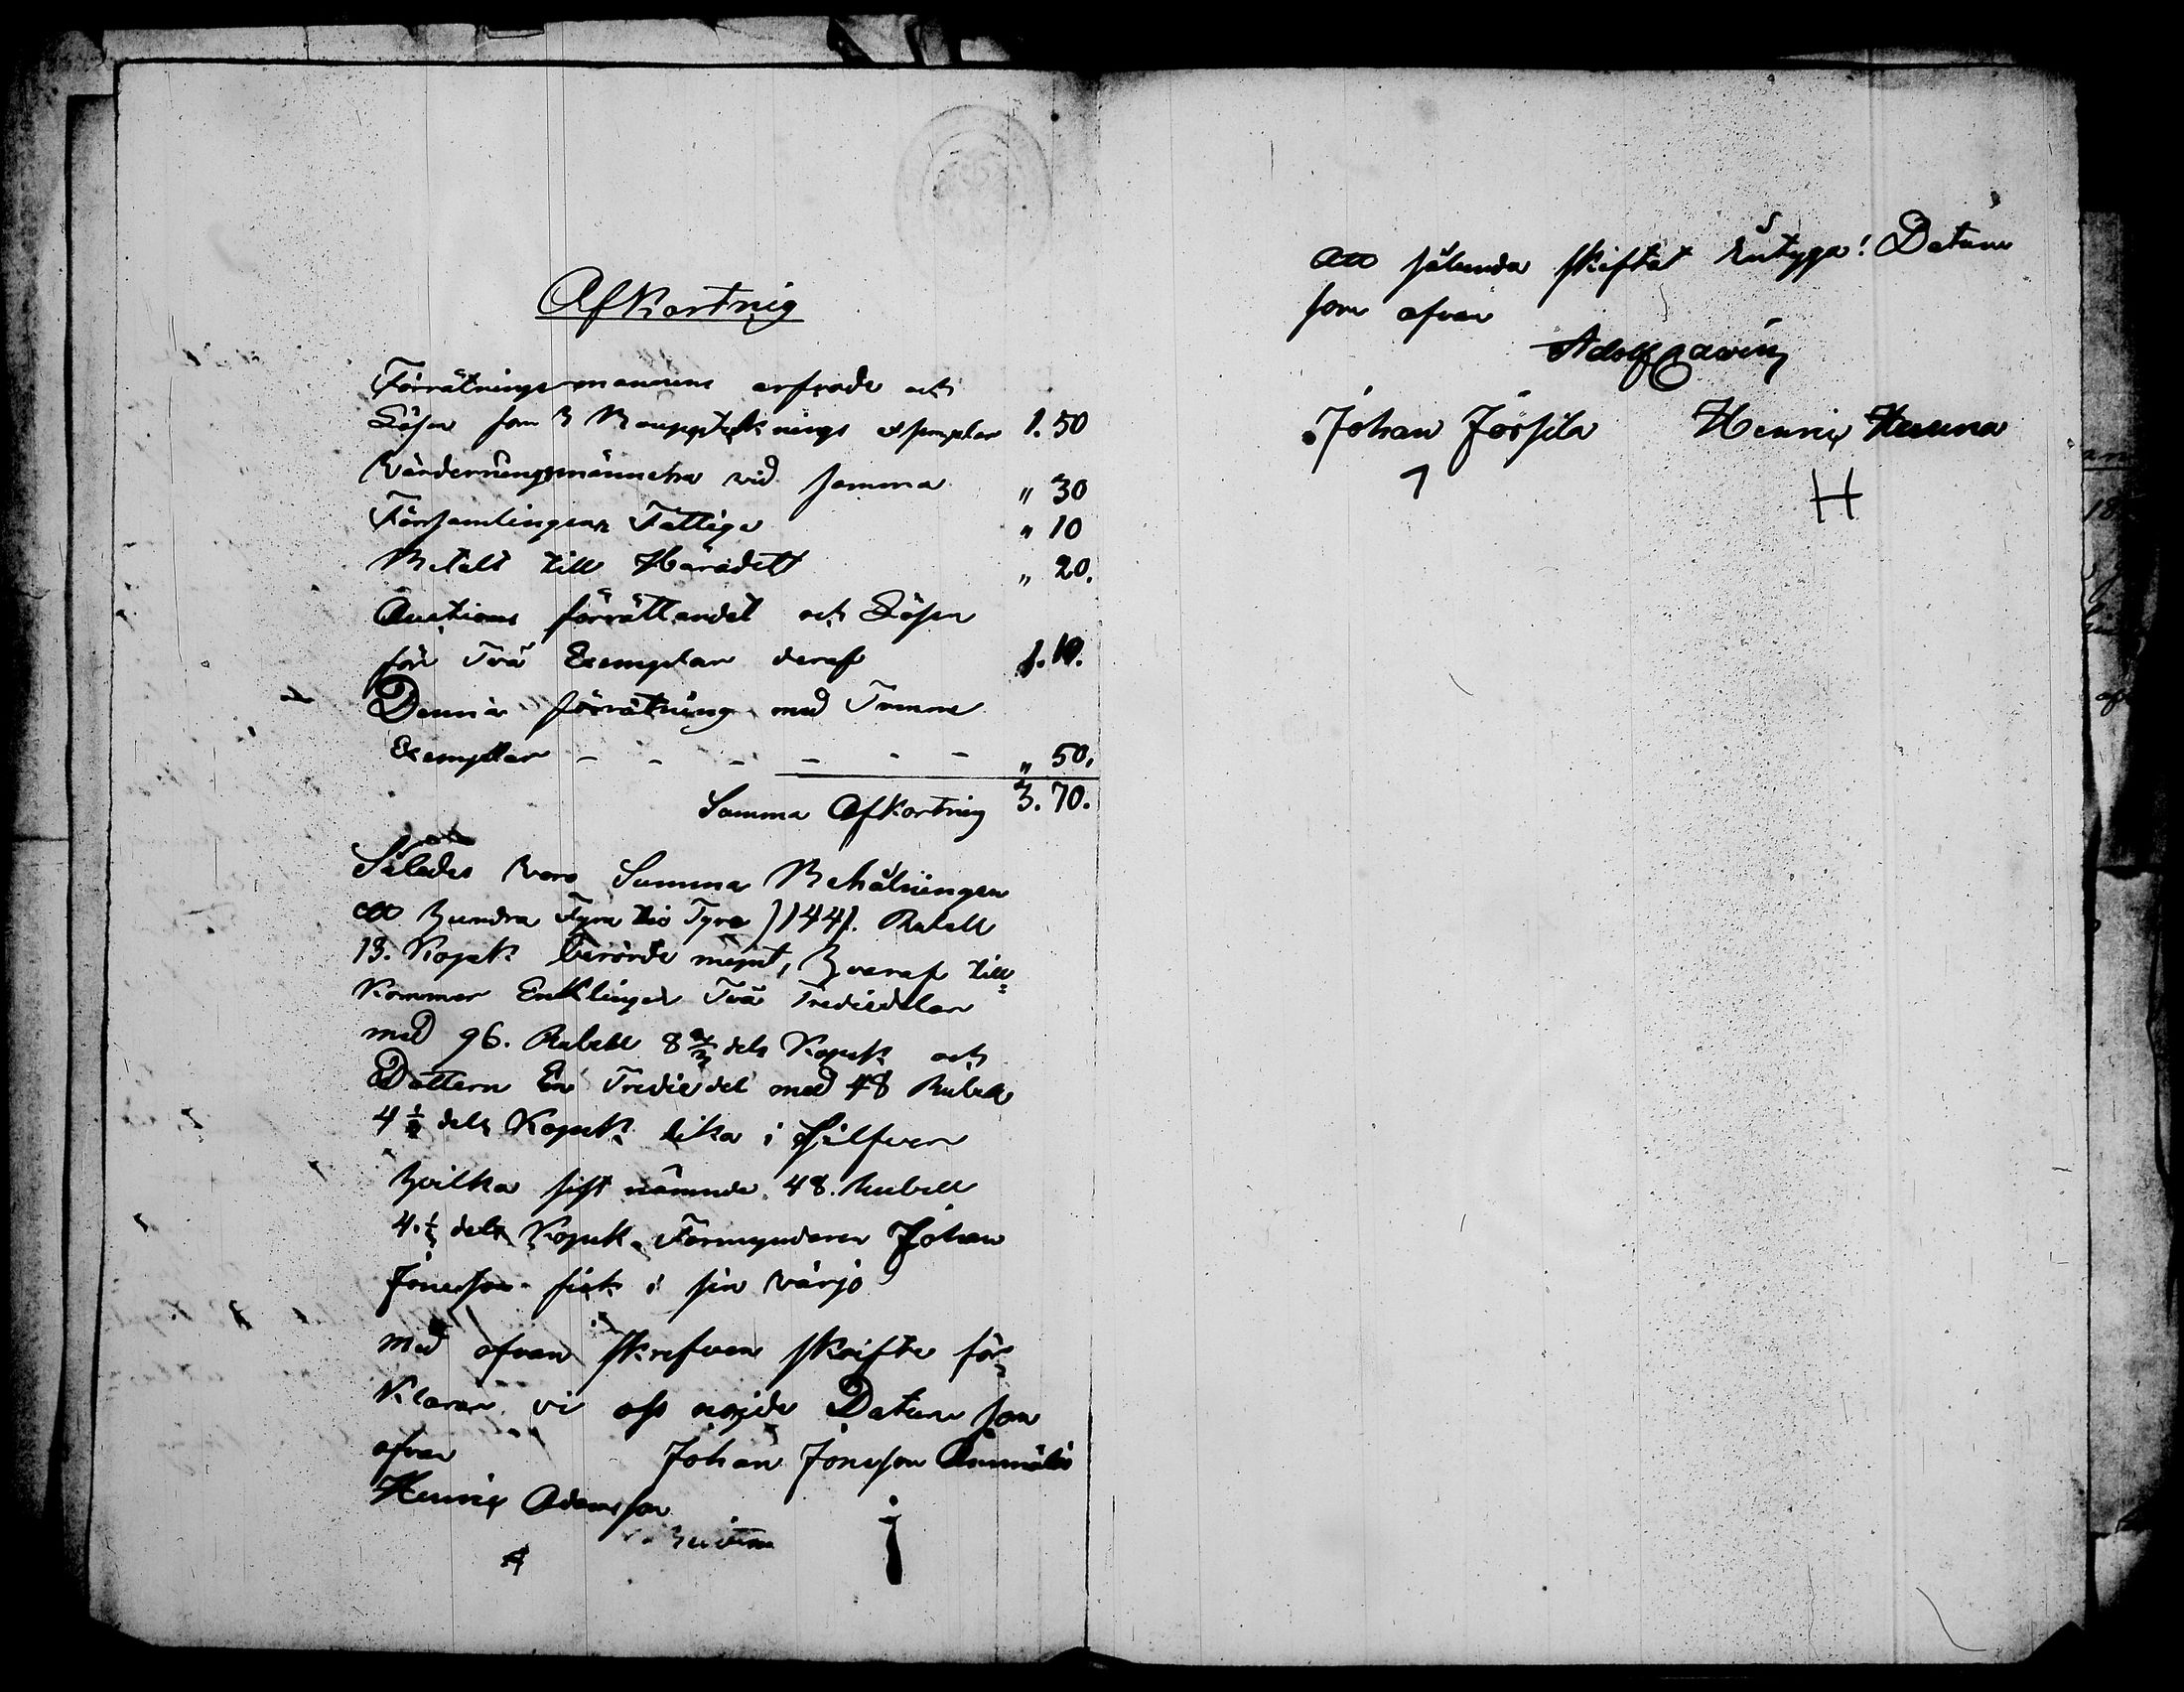 Afkortnig
Förrätningsmannens arfvode och
Lösen som B Bouppteknings exsemplar 1.50
Värderningsmännerna vid samma " 30
Församlingens Fattiga " 10
Betalt till Häradett " 20.
Auctions förrättandet och Lösen
för Två Exemplar deraf 1.10.
Denna förrätning med Tvenne
Exemplar - - - - - - " 50,
Summa Afkortnig 3.70.
Således vara Summa Behålningen
ett hundra Fyra tio Fyra )144). Rubell
13. Kopek berörde mynt, hvaraf till=
Kommer Enklingen Två Trediedelar
med 96. Rubell 8 2/3 dels Kopek och
Dottern En Trediedel med 48 Rubell
4 1/3 dels Kopek lika i Silfver
hvilka sist nämnde 48. Rubell
4. 1/3 dels Kopek Förmyndaren Johan
Jönesson fick i sin värjo
med ofvan skrefvene skrifte för=
Klarar vi oss nöjde Datum som
ofvan Johan Jönesson
Henric Adamsson
j
Att sålunda skiftat Intyga! Datum
som ofvan
Adolf
Johan Jössila Henric
H